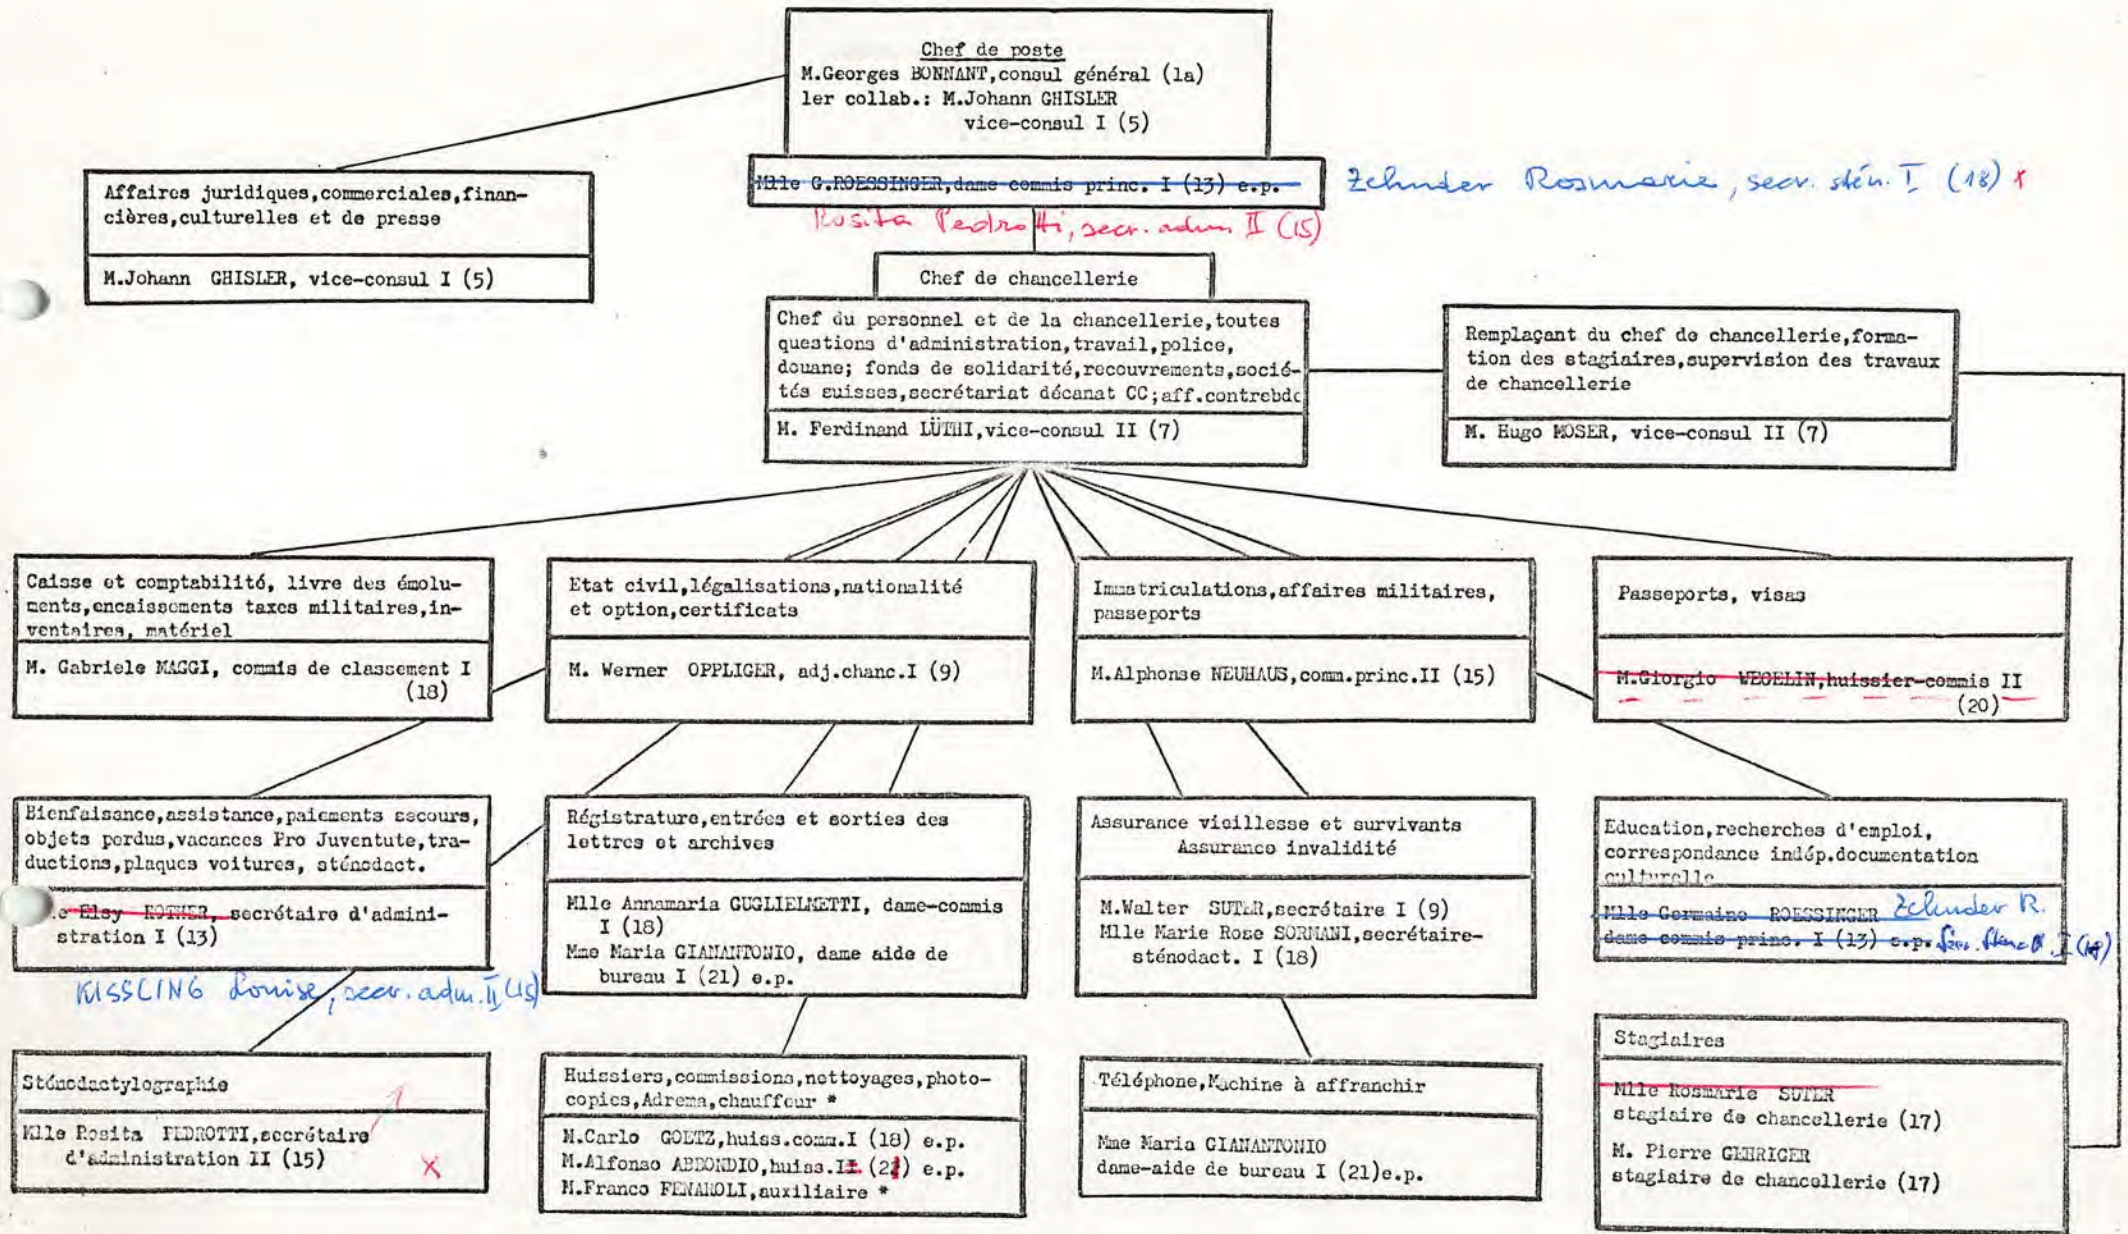 Chef de poste
M.Georges BONNANT,consul général (1a)
1er collab.: M.Johann GHISLER
vice-consul I (5)
Mlle G.ROESSINGER,dame commis princ. I (13) e.p.
Zehnder Rosmarie, secr. stén. I (18) x
Rosita Pedrotti, secr. adm II (15)
Affaires juridiques,commerciales,finan-
cières,culturelles et de presse
M.Johann GHISLER, vice-consul I (5)
Chef de chancellerie
Chef du personnel et de la chancellerie,toutes
questions d'administration,travail,police,
douane; fonds de solidarité,recouvrements,socié-
tés suisses,secrétariat décanat CC;aff.contrebde
M. Ferdinand LÜTHI,vice-consul II (7)
Remplaçant du chef de chancellerie,forma-
tion des stagiaires,supervision des travaux
de chancellerie
M. Hugo MOSER, vice-consul II (7)
Caisse et comptabilité, livre des émolu-
ments,encaissements taxes militaires,in-
ventaires, matériel
M. Gabriele MAGGI, commis de classement I
(18)
Etat civil,légalisations,nationalité
et option,certificats
M. Werner OPPLIGER, adj.chanc.I (9)
Immatriculations,affaires militaires,
passeports
M.Alphonse NEUHAUS,comm.princ.II (15)
Passeports, visas
M.Giorgio WEGELIN,huissier-commis II
(20)
Bienfaisance,assistance,paiements secours,
objets perdus,vacances Pro Juventute,tra-
ductions,plaques voitures, sténodact.
e Elsy ROTHER, secrétaire d'admini-
stration I (13)
KISSLING Louise, secr. adm. II (15)
Régistrature,entrées et sorties des
lettres et archives
Mlle Annamaria GUGLIELMETTI, dame-commis
I (18)
Mme Maria GIANANTONIO, dame aide de
bureau I (21) e.p.
Assurance vieillesse et survivants
Assurance invalidité
M.Walter SUTER,secrétaire I (9)
Mlle Marie Rose SORMANI,secrétaire-
sténodact. I (18)
Education,recherches d'emploi,
correspondance indép.documentation
culturelle
Mlle Germaine ROESSINGER Zehnder R.
dame commis princ. I (13) e.p. I (18)
Sténodactylographie
Mlle Rosita PEDROTTI,secrétaire
d'administration II (15)
x
Huissiers,commissions,nettoyages,photo-
copies,Adrema,chauffeur *
M.Carlo GOETZ,huiss.comm.I (18) e.p.
M.Alfonso ABBONDIO,huiss.II e.p.
M.Franco FENAROLI,auxiliaire *
Téléphone,Machine à affranchir
Mme Maria GIANANTONIO
dame-aide de bureau I (21)e.p.
Stagiaires
Mlle Rosmarie SUTER
stagiaire de chancellerie (17)
M. Pierre GEHRIGER
stagiaire de chancellerie (17)